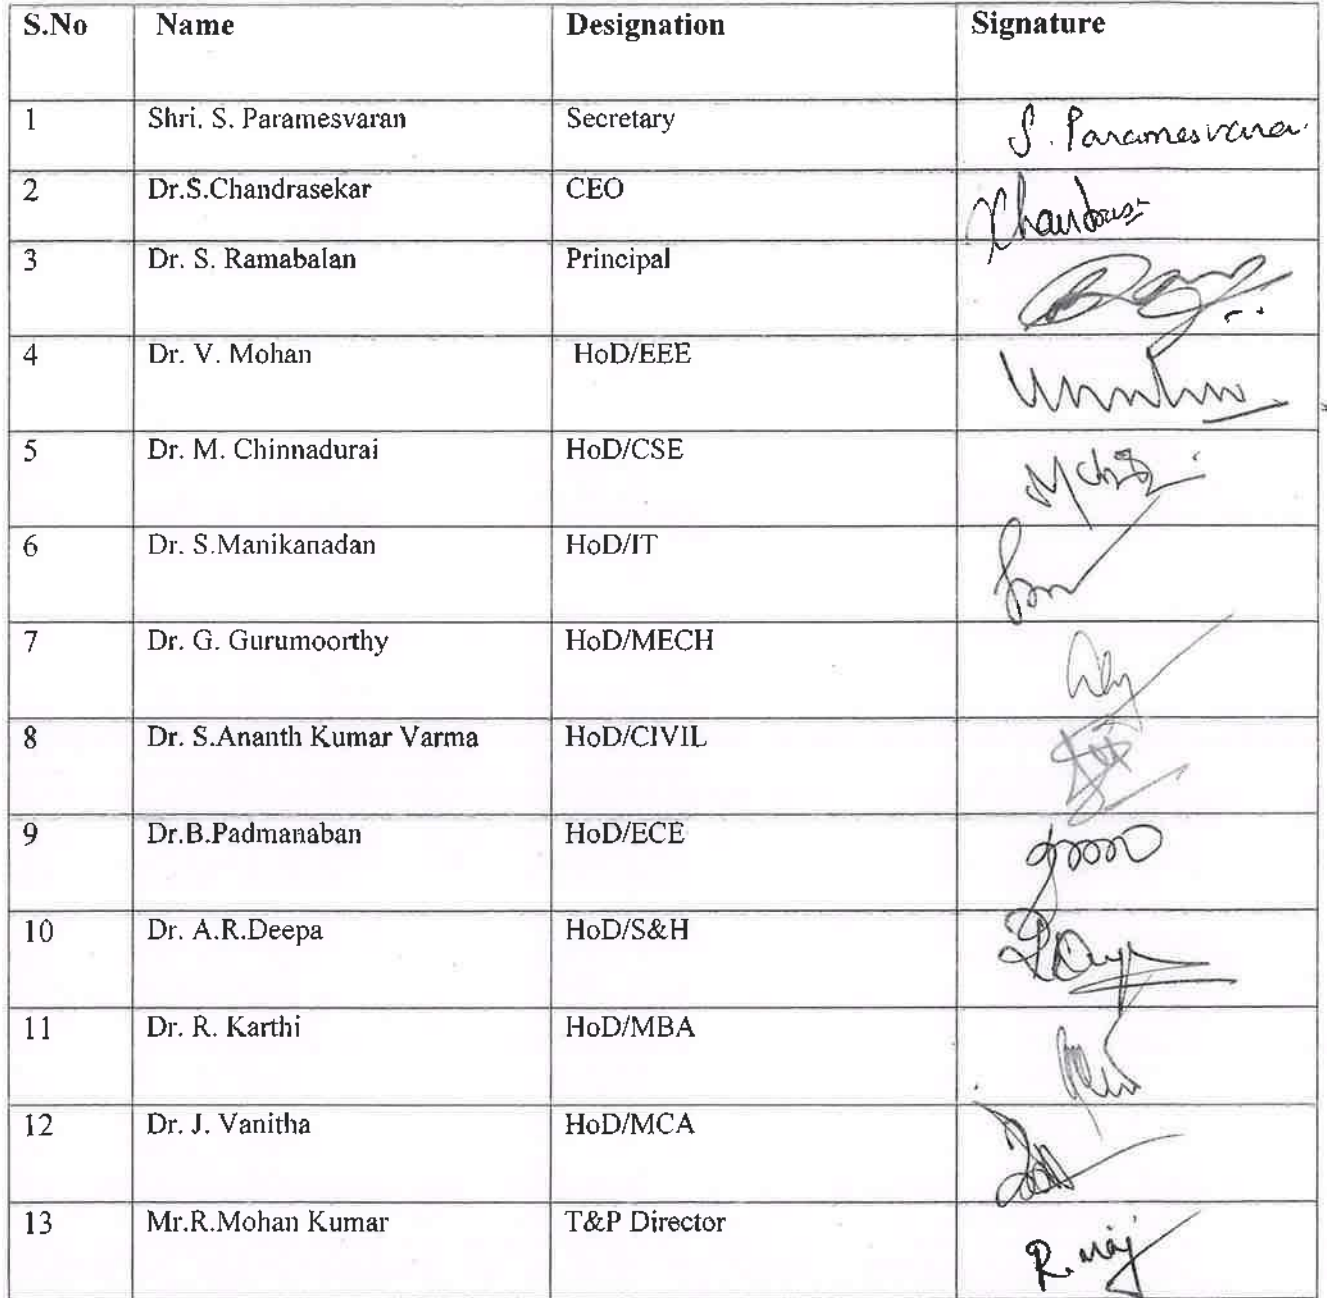 S.No Name Designation Signature
1 Shri. S. Paramesvaran Secretary S. Paramesvaran
2 Dr.S.Chandrasekar CEO
3 Dr. S. Ramabalan Principal
4 Dr. V. Mohan HoD/EEE
5 Dr. M. Chinnadurai HoD/CSE
6 Dr. S.Manikanadan HoD/IT
7 Dr. G. Gurumoorthy HoD/MECH
8 Dr. S.Ananth Kumar Varma HoD/CIVIL
9 Dr.B.Padmanaban HoD/ECE
10 Dr. A.R.Deepa HoD/S&H
11 Dr. R. Karthi HoD/MBA
12 Dr. J. Vanitha HoD/MCA
13 Mr.R.Mohan Kumar T&P Director